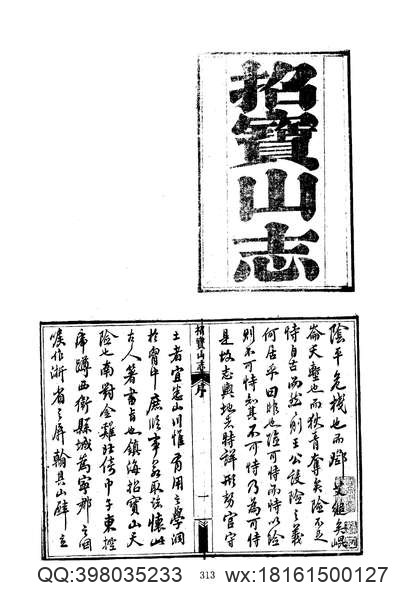 招寶山志
陰平危棧也而鄧艾縋矣崐
崙天塹也而狄青奪矣險不足
恃自古而然則王公設險之義
何居乎曰非也險可恃而恃以險
則不可恃知其不可恃乃為可恃
是故志輿地者特詳形勢官守
招寶山志 序 一
土者宜悉山川惟有用之學洞
於胷中庶臨事取諸懷此
古人著書旨也鎮海招寶山天
險也南對金雞北倚巾子東控
虎蹲西衛縣城為寧郡之咽
喉作浙省之屏翰具山壁立
QQ:398035233 313 wx:18161500127